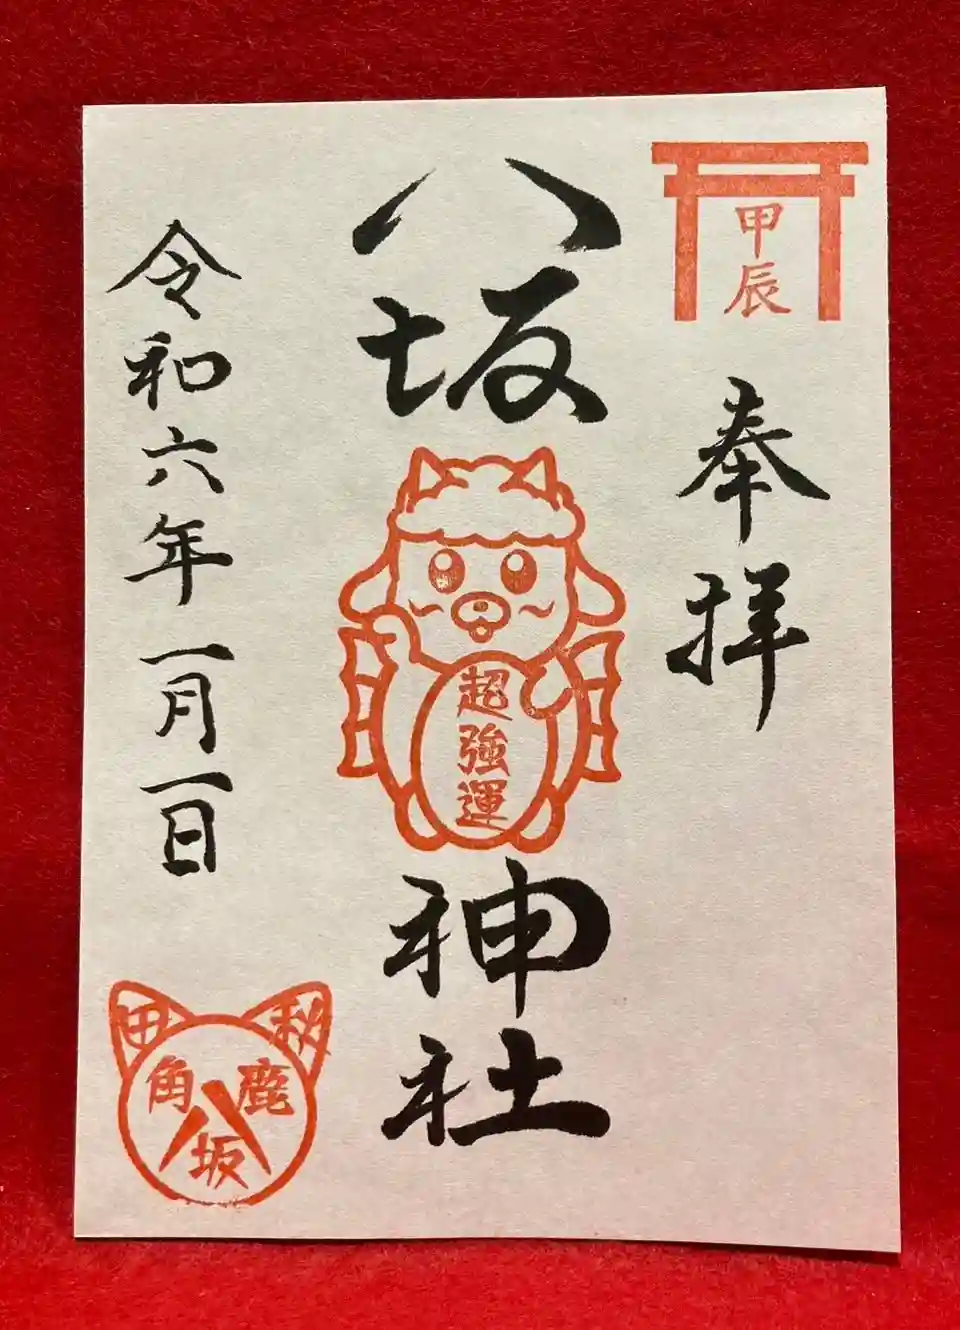 甲辰
奉拝
八坂神社
超強運
令和六年一月一日
秋田
鹿角
八坂